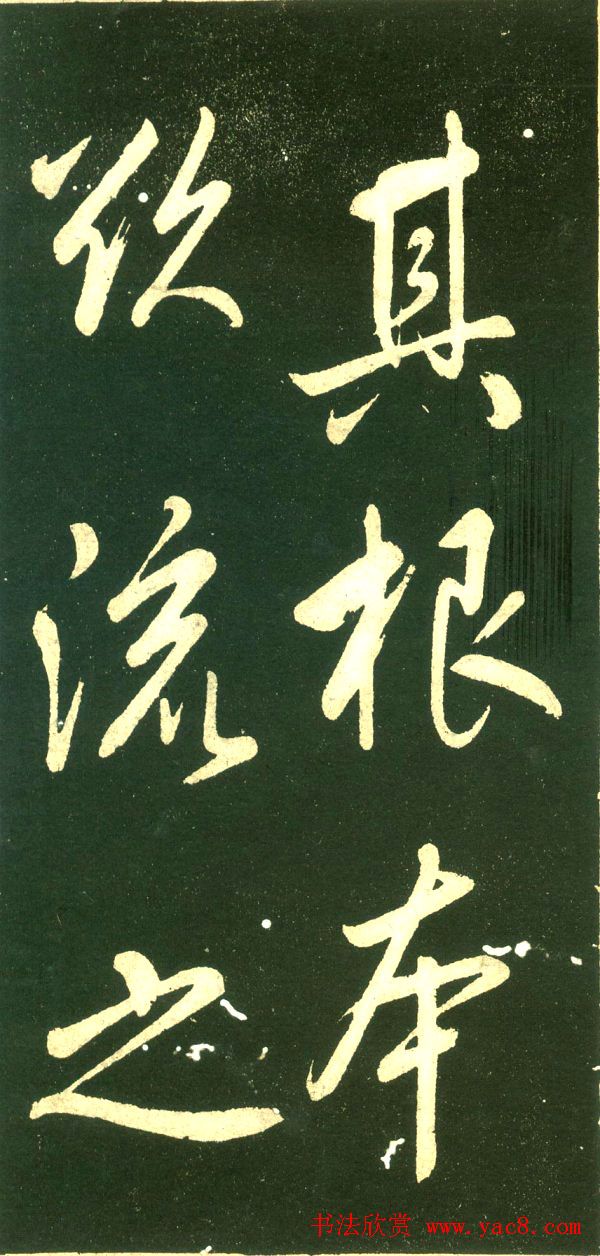 其根本
欲流之
书法欣赏 www.yac8.com